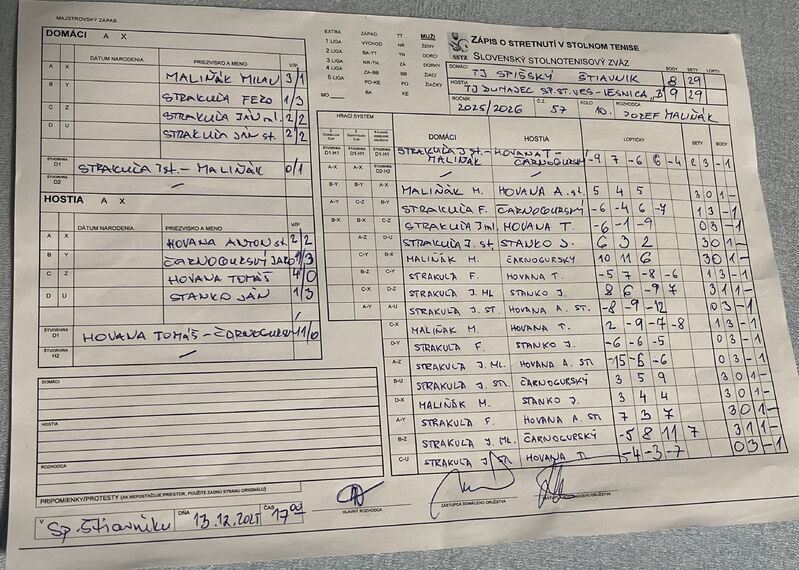 MAJSTROVSKÝ ZÁPAS
DOMÁCI A X
DÁTUM NARODENIA PRIEZVISKO A MENO V/P
A X MALIŇÁK MILAN 3/1
B Y STRAKUĽA FERO 1/3
C Z STRAKUĽA JÁN ml. 2/2
D U STRAKUĽA JÁN st. 2/2
ŠTVORHRA D1 STRAKUĽA J st. - MALIŇÁK 0/1
ŠTVORHRA D2
HOSTIA A X
DÁTUM NARODENIA PRIEZVISKO A MENO V/P
A X HOVANA ANTON st. 2/2
B Y ČARNOGURSKÝ JARO 1/3
C Z HOVANA TOMÁŠ 4/0
D U STANKO JÁN 1/3
ŠTVORHRA D1 HOVANA TOMÁŠ - ČARNOGURSKÝ 1/0
ŠTVORHRA H2
DOMÁCI
HOSTIA
ROZHODCA
PRIPOMIENKY/PROTESTY (AK NEPOSTAČUJE PRIESTOR, POUŽITE ZADNÚ STRANU ORIGINÁLU)
V Sp. Štiavniku DŇA 13.12.2025 ČAS 17 00
HLAVNÝ ROZHODCA
ZÁSTUPCA DOMÁCEHO DRUŽSTVA
EXTRA ZÁPAD TT MUŽI
1 LIGA VÝCHOD NR ŽENY
2 LIGA BA-TT TN DORCI
3 LIGA NR-TN ZA DORKY
4 LIGA ZA-BB BB ŽIACI
5 LIGA PO-KE PO ŽIAČKY
MO BA KE
SSTZ
ZÁPIS O STRETNUTÍ V STOLNOM TENISE
SLOVENSKÝ STOLNOTENISOVÝ ZVÄZ
BODY SETY LOPTY
DOMÁCI TJ SPIŠSKÝ ŠTIAVNIK 8 29
HOSTIA TJ DUNAJEC SP.ST.VES-LESNICA "B" 9 29
ROČNÍK 2025/2026 Č.Z. 57 KOLO 10. ROZHODCA JOZEF MALIŇÁK
HRACÍ SYSTÉM
DOMÁCI HOSTIA LOPTIČKY SETY BODY
D1-H1 D1-H1 D1-H1 STRAKUĽA J st. - MALIŇÁK HOVANA T - ČARNOGURSKÝ -9 7 -6 6 -4 2 3 -1
A-X D2-H2
B-Y A-X MALIŇÁK M. HOVANA A. st. 5 4 5 3 0 1 -
A-Y C-Z B-Y STRAKUĽA F. ČARNOGURSKÝ -6 -4 6 -7 1 3 - 1
B-X B-X C-Z STRAKUĽA J ml. HOVANA T. -6 -1 -9 0 3 - 1
A-Z D-U STRAKUĽA J. st. STANKO J. 6 3 2 3 0 1 -
C-Y B-X MALIŇÁK M. ČARNOGURSKÝ 10 11 6 3 0 1 -
B-Z C-Y STRAKUĽA F. HOVANA T. -5 7 -8 -6 1 3 - 1
C-X D-Z STRAKUĽA J. ML STANKO J. 8 6 -9 7 3 1 1 -
A-Y A-U STRAKUĽA J. ST. HOVANA A. ST -8 -9 -12 0 3 - 1
C-X MALIŇÁK M. HOVANA T. 2 -9 -7 -8 1 3 - 1
D-Y STRAKUĽA F. STANKO J. -6 -6 -5 0 3 - 1
A-Z STRAKUĽA J. ML. HOVANA A. ST. -15 -6 -6 0 3 - 1
B-U STRAKUĽA J. ST. ČARNOGURSKÝ 3 5 9 3 0 1 -
D-X MALIŇÁK M. STANKO J. 3 4 4 3 0 1 -
A-Y STRAKUĽA F. HOVANA A. ST. 7 3 7 3 0 1 -
B-Z STRAKUĽA J. ML. ČARNOGURSKÝ -5 8 11 7 3 1 1 -
C-U STRAKUĽA J. ST. HOVANA -4 -3 -7 0 3 - 1